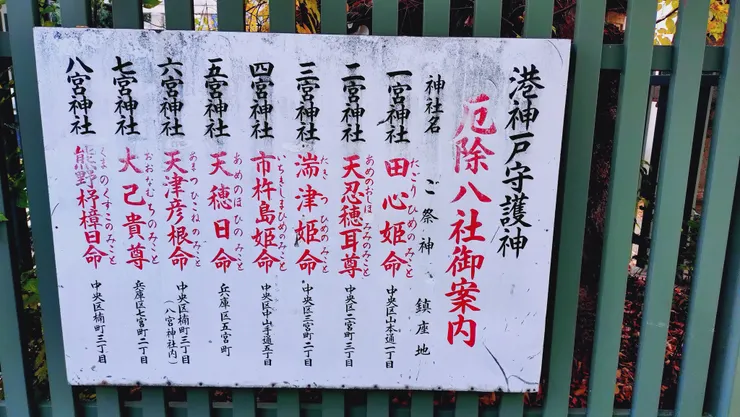 港神戸守護神
厄除八社御案内
神社名 ご祭神 鎮座地
一宮神社 田心姫命 たごりひめのみこと 中央区山本通一丁目
二宮神社 天忍穂耳尊 あめのおしほみみのみこと 中央区二宮町三丁目
三宮神社 湍津姫命 たきつひめのみこと 中央区三宮町二丁目
四宮神社 市杵島姫命 いちきしまひめのみこと 中央区中山手通五丁目
五宮神社 天穂日命 あめのほひのみこと 兵庫区五宮町
六宮神社 天津彦根命 あまつひこねのみこと 中央区楠町三丁目
(八宮神社内)
七宮神社 大己貴尊 おおなむちのみこと 兵庫区七宮町二丁目
八宮神社 熊野杼樟日命 くまのくすこのみこと 中央区楠町三丁目